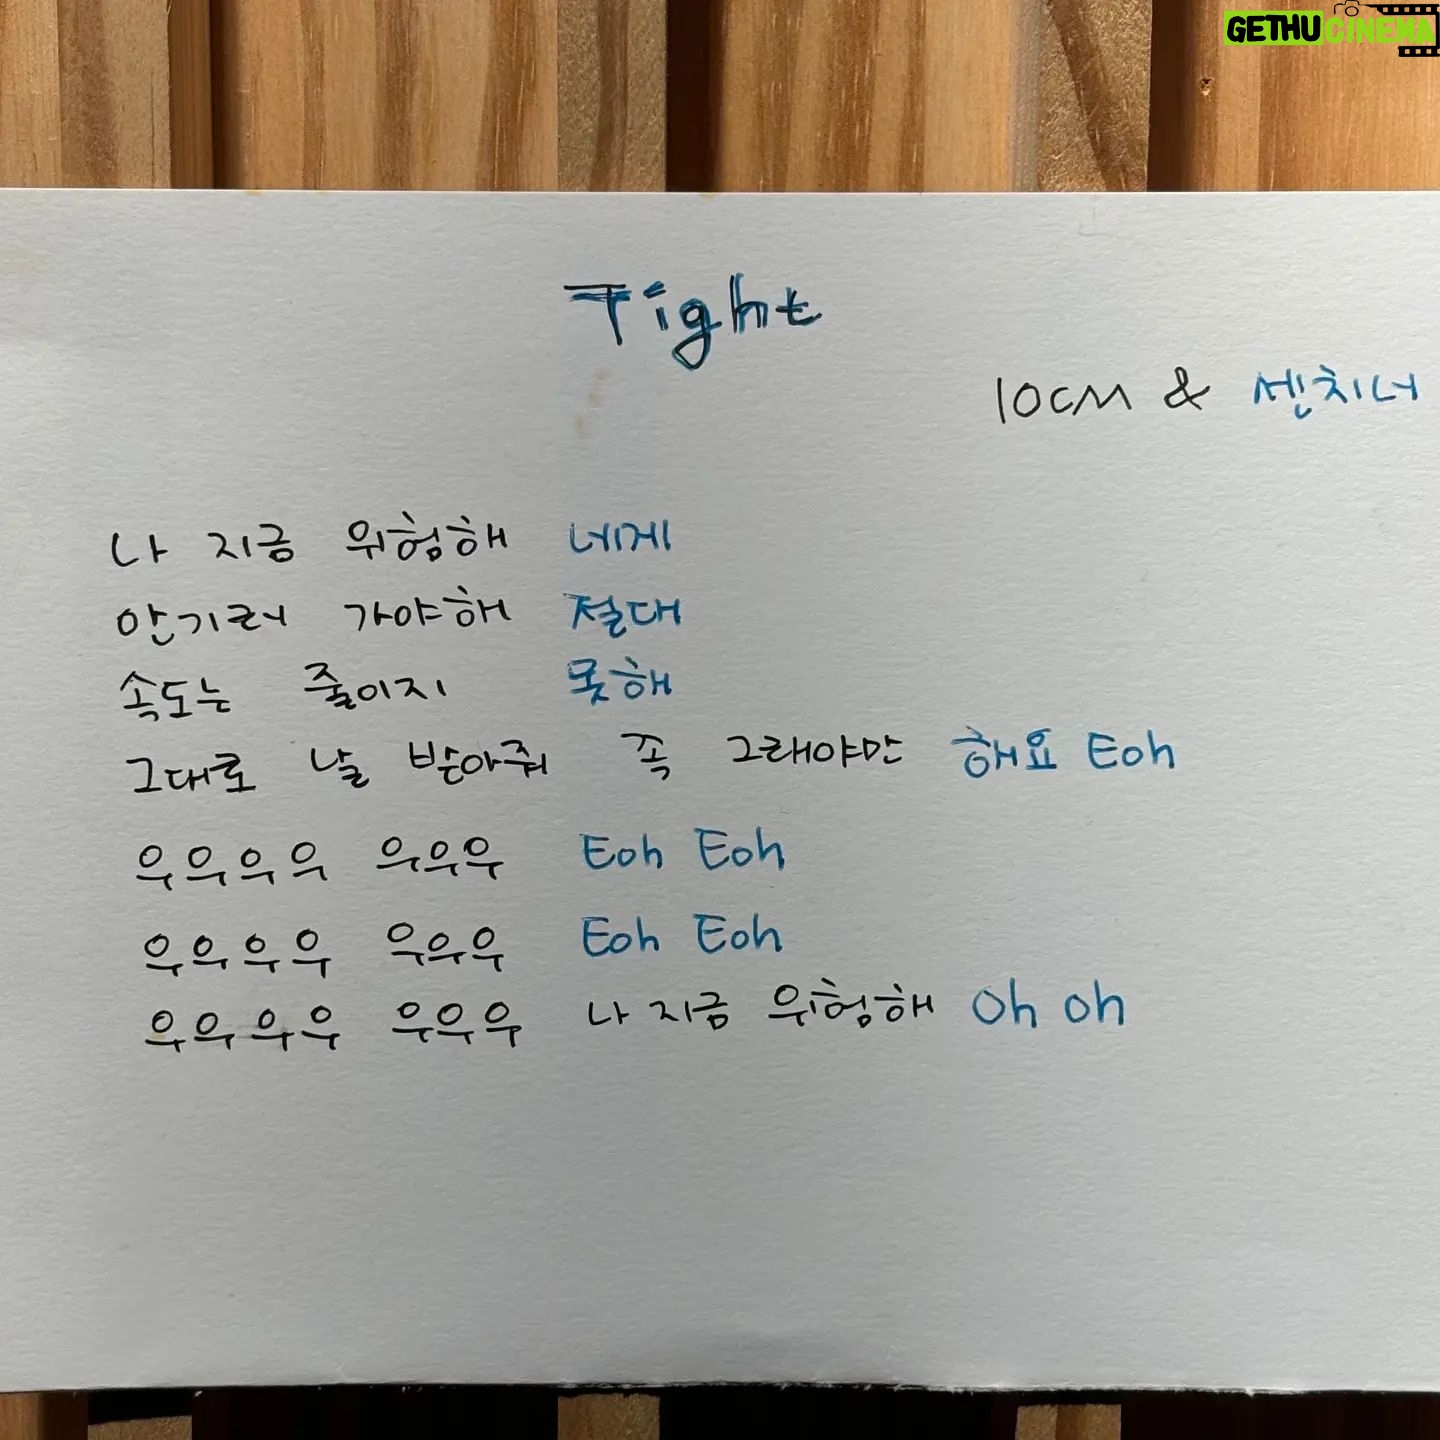 GETHUCINEMA
Tight
10CM & 센치너
나 지금 위험해 네게
안기러 가야해 절대
속도는 줄이지 못해
그대로 날 받아줘 꼭 그래야만 해요 Eoh
우우우우 우우우 Eoh Eoh
우우우우 우우우 Eoh Eoh
우우우우 우우우 나 지금 위험해 Oh oh